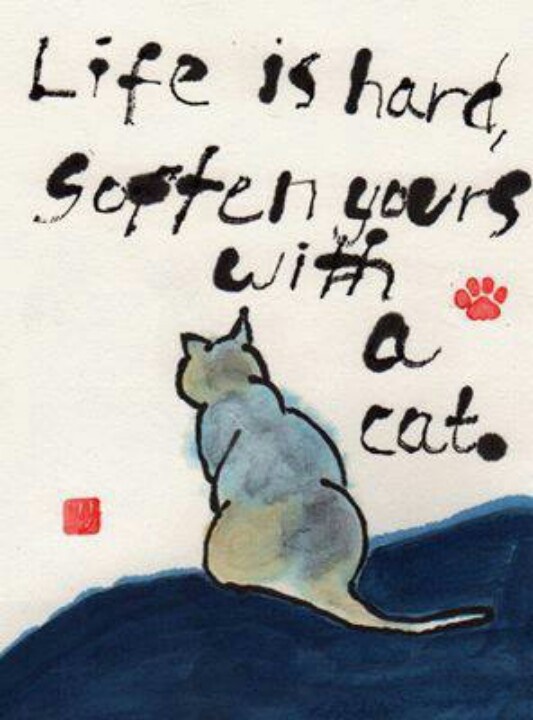 Life is hard,
Soften yours
with
a
cat.